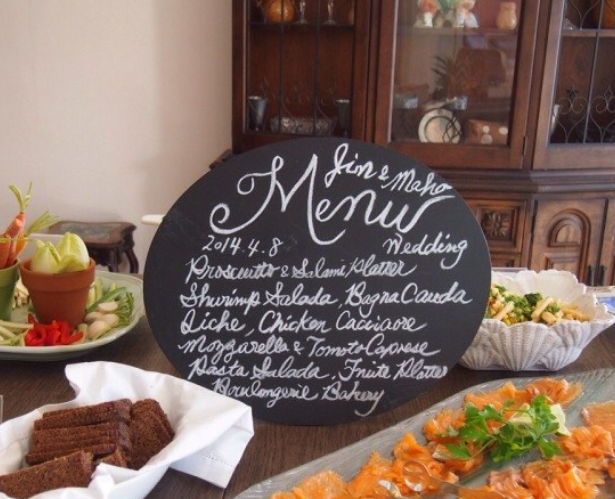 Jim & Maho
Menu
2014.4.8 Wedding
Proscuitto & Salami Platter
Shurimp Salada, Bagna Cauda
Qiche, Chicken Cacciaore
Mozzarella & Tomato Caprese
Pasta Salada, Fruite Platter
Boulongerie Bakery